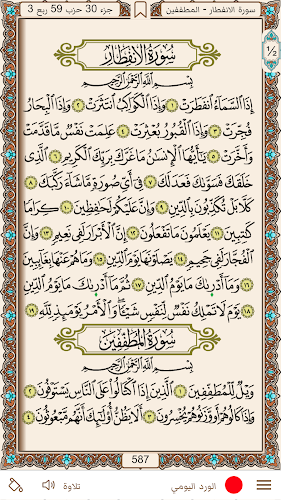 سورة الانفطار - المطففين
جزء 30 حزب 59 ربع 3
1/2
سُورَةُ الِانفِطَارِ
بِسْمِ اللَّهِ الرَّحْمَٰنِ الرَّحِيمِ
إِذَا السَّمَاءُ انفَطَرَتْ ١ وَإِذَا الْكَوَاكِبُ انتَثَرَتْ ٢ وَإِذَا الْبِحَارُ
فُجِّرَتْ ٣ وَإِذَا الْقُبُورُ بُعْثِرَتْ ٤ عَلِمَتْ نَفْسٌ مَّا قَدَّمَتْ
وَأَخَّرَتْ ٥ يَا أَيُّهَا الْإِنسَانُ مَا غَرَّكَ بِرَبِّكَ الْكَرِيمِ ٦ الَّذِي
خَلَقَكَ فَسَوَّاكَ فَعَدَلَكَ ٧ فِي أَيِّ صُورَةٍ مَّا شَاءَ رَكَّبَكَ ٨
كَلَّا بَلْ تُكَذِّبُونَ بِالدِّينِ ٩ وَإِنَّ عَلَيْكُمْ لَحَافِظِينَ ١٠ كِرَامًا
كَاتِبِينَ ١١ يَعْلَمُونَ مَا تَفْعَلُونَ ١٢ إِنَّ الْأَبْرَارَ لَفِي نَعِيمٍ ١٣ وَإِنَّ
الْفُجَّارَ لَفِي جَحِيمٍ ١٤ يَصْلَوْنَهَا يَوْمَ الدِّينِ ١٥ وَمَا هُمْ عَنْهَا بِغَائِبِينَ
١٦ وَمَا أَدْرَاكَ مَا يَوْمُ الدِّينِ ١٧ ثُمَّ مَا أَدْرَاكَ مَا يَوْمُ الدِّينِ
١٨ يَوْمَ لَا تَمْلِكُ نَفْسٌ لِّنَفْسٍ شَيْئًا وَالْأَمْرُ يَوْمَئِذٍ لِّلَّهِ ١٩
سُورَةُ المُطَفِّفِينَ
بِسْمِ اللَّهِ الرَّحْمَٰنِ الرَّحِيمِ
وَيْلٌ لِّلْمُطَفِّفِينَ ١ الَّذِينَ إِذَا اكْتَالُوا عَلَى النَّاسِ يَسْتَوْفُونَ ٢
وَإِذَا كَالُوهُمْ أَو وَّزَنُوهُمْ يُخْسِرُونَ ٣ أَلَا يَظُنُّ أُولَٰئِكَ أَنَّهُم مَّبْعُوثُونَ ٤
587
الورد اليومي
تلاوة